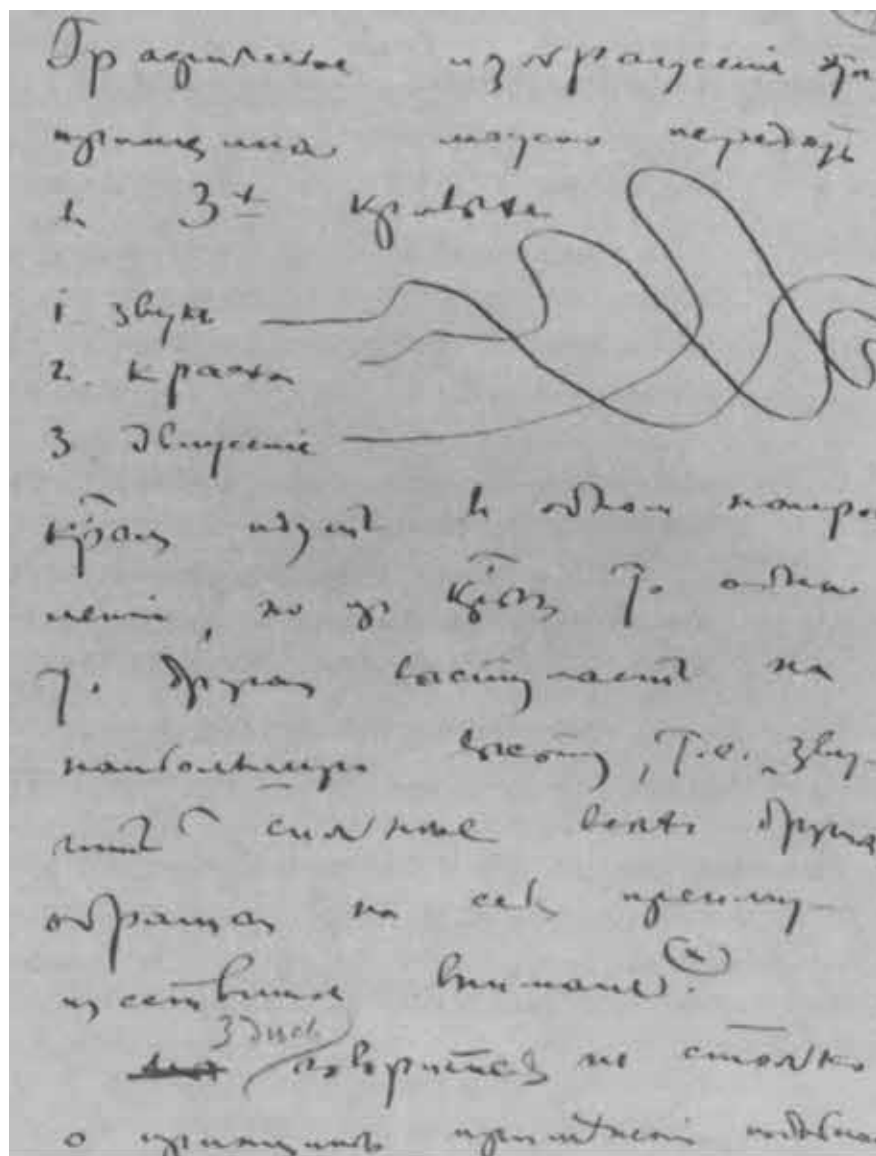 Графическое изображение
принципа можно передать
въ 3хъ кривыхъ
1. звукъ
2. краска
3. движеніе
идутъ въ одномъ направ
леніи, но то одна
т. другая выступаетъ на
наибольшую высоту, т.е. „зву-
читъ“ сильнѣе всѣхъ другихъ
обращая на себя преиму-
щественное вниманіе (х).
Здѣсь говорится не столько
о принципѣ